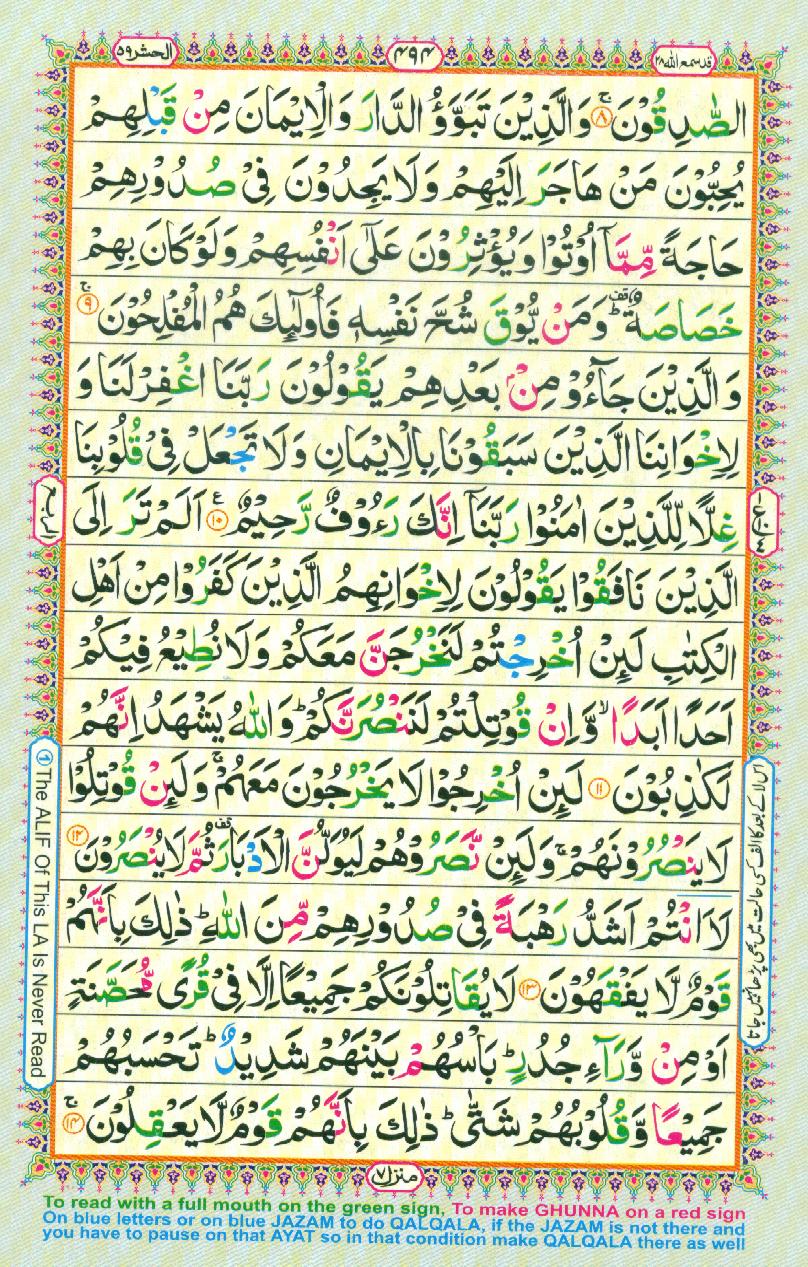 قد سمع الله ٢٨
٤٩٤
الحشر ٥٩
الصّٰدِقُوْنَ ۚ﴿٨﴾ وَالَّذِيْنَ تَبَوَّؤُ الدَّارَ وَالْاِيْمَانَ مِنْ قَبْلِهِمْ
يُحِبُّوْنَ مَنْ هَاجَرَ اِلَيْهِمْ وَلَا يَجِدُوْنَ فِيْ صُدُوْرِهِمْ
حَاجَةً مِّمَّآ اُوْتُوْا وَيُؤْثِرُوْنَ عَلٰٓى اَنْفُسِهِمْ وَلَوْ كَانَ بِهِمْ
خَصَاصَةٌ ؕقف وَمَنْ يُّوْقَ شُحَّ نَفْسِهٖ فَاُولٰٓئِكَ هُمُ الْمُفْلِحُوْنَ ۚ﴿٩﴾
وَالَّذِيْنَ جَآءُوْ مِنْۢ بَعْدِهِمْ يَقُوْلُوْنَ رَبَّنَا اغْفِرْ لَنَا وَ
لِاِخْوَانِنَا الَّذِيْنَ سَبَقُوْنَا بِالْاِيْمَانِ وَلَا تَجْعَلْ فِيْ قُلُوْبِنَا
غِلًّا لِّلَّذِيْنَ اٰمَنُوْا رَبَّنَآ اِنَّكَ رَءُوْفٌ رَّحِيْمٌ ﴿١٠﴾ع اَلَمْ تَرَ اِلَى
الَّذِيْنَ نَافَقُوْا يَقُوْلُوْنَ لِاِخْوَانِهِمُ الَّذِيْنَ كَفَرُوْا مِنْ اَهْلِ
الْكِتٰبِ لَئِنْ اُخْرِجْتُمْ لَنَخْرُجَنَّ مَعَكُمْ وَلَا نُطِيْعُ فِيْكُمْ
اَحَدًا اَبَدًا ۙ وَّاِنْ قُوْتِلْتُمْ لَنَنْصُرَنَّكُمْ ؕ وَاللّٰهُ يَشْهَدُ اِنَّهُمْ
لَكٰذِبُوْنَ ﴿١١﴾ لَئِنْ اُخْرِجُوْا لَا يَخْرُجُوْنَ مَعَهُمْ ۚ وَلَئِنْ قُوْتِلُوْا
لَا يَنْصُرُوْنَهُمْ ۚ وَلَئِنْ نَّصَرُوْهُمْ لَيُوَلُّنَّ الْاَدْبَارَ قف ثُمَّ لَا يُنْصَرُوْنَ ﴿١٢﴾
لَا۟اَنْتُمْ اَشَدُّ رَهْبَةً فِيْ صُدُوْرِهِمْ مِّنَ اللّٰهِ ؕ ذٰلِكَ بِاَنَّهُمْ
قَوْمٌ لَّا يَفْقَهُوْنَ ﴿١٣﴾ لَا يُقَاتِلُوْنَكُمْ جَمِيْعًا اِلَّا فِيْ قُرًى مُّحَصَّنَةٍ
اَوْ مِنْ وَّرَآءِ جُدُرٍ ؕ بَاْسُهُمْ بَيْنَهُمْ شَدِيْدٌ ؕ تَحْسَبُهُمْ
جَمِيْعًا وَّقُلُوْبُهُمْ شَتّٰى ؕ ذٰلِكَ بِاَنَّهُمْ قَوْمٌ لَّا يَعْقِلُوْنَ ۚ﴿١٤﴾
الربع
① The ALIF Of This LA Is Never Read
اس لا کے بعد کا الف کسی حالت میں بھی پڑھا نہیں جاتا
منزل ٧
To read with a full mouth on the green sign, To make GHUNNA on a red sign
On blue letters or on blue JAZAM to do QALQALA, if the JAZAM is not there and
you have to pause on that AYAT so in that condition make QALQALA there as well